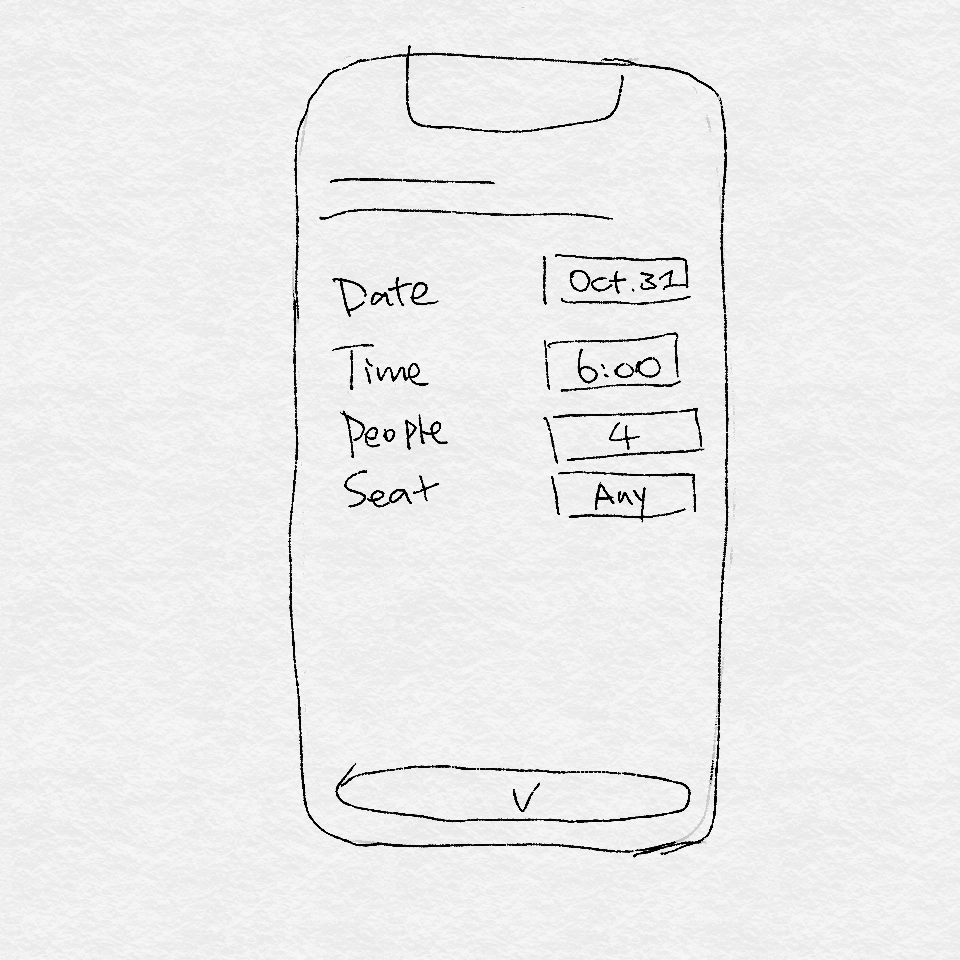 Date Oct.31
Time 6:00
People 4
Seat Any